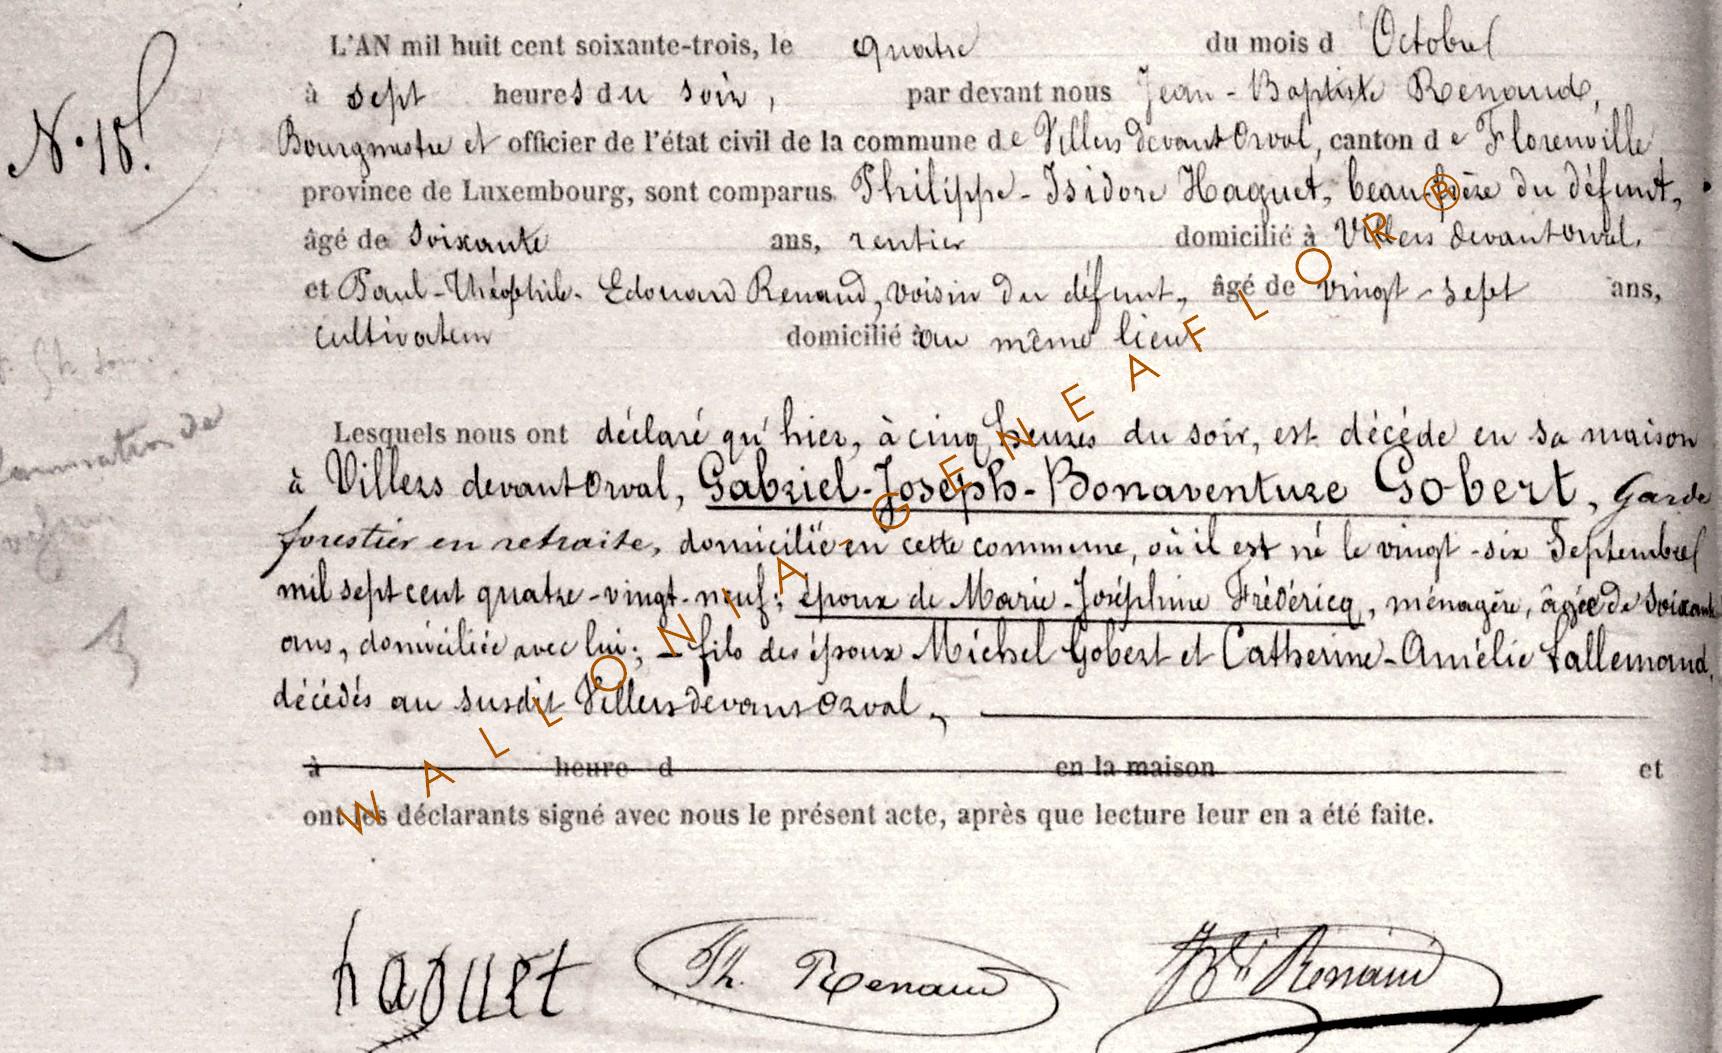 L'AN mil huit cent soixante-trois, le quatre du mois d'Octobre
à sept heures du soir, par devant nous Jean-Baptiste Renaud,
N° 18.
Bourgmestre et officier de l'état civil de la commune de Villers devant Orval, canton de Florenville
province de Luxembourg, sont comparus Philippe-Isidore Haguet, beau-frère du défunt,
âgé de soixante ans, rentier domicilié à Villers devant Orval,
et Paul-Théophile-Edouard Renaud, voisin du défunt, âgé de vingt-sept ans,
cultivateur domicilié à au même lieu
Lesquels nous ont déclaré qu'hier, à cinq heures du soir, est décédé en sa maison
à Villers devant Orval, Gabriel-Joseph-Bonaventure Gobert, Garde
forestier en retraite, domicilié en cette commune, où il est né le vingt-six Septembre
mil sept cent quatre-vingt-neuf; époux de Marie-Joséphine Frédéricq, ménagère, âgée de soixante
ans, domiciliée avec lui; – fils des époux Michel Gobert et Catherine-Amélie Lallemand,
décédés au susdit Villers devant Orval,
à heure d en la maison et
ont les déclarants signé avec nous le présent acte, après que lecture leur en a été faite.
haguet Th. Renaud JBte Renaud
WALLONIA-GENEAFLOR®